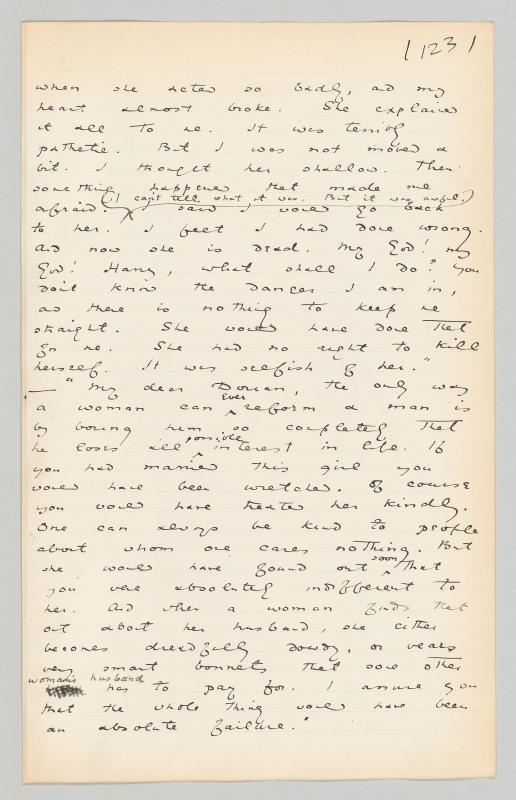 123
when she acted so badly, and my
heart almost broke. She explained
it all to me. It was terribly
pathetic. But I was not moved a
bit. I thought her shallow. Then
something happened that made me
(I can't tell what it was. But it was awful.)
afraid. I said I would go back
to her. I felt I had done wrong.
And now she is dead. My God! my
God! Harry, what shall I do? You
don't know the danger I am in,
and there is nothing to keep me
straight. She would have done that
for me. She had no right to kill
herself. It was selfish of her."
— "My dear Dorian, the only way
ever
a woman can reform a man is
by boring him so completely that
possible
he loses all interest in life. If
you had married this girl you
would have been wretched. Of course
you would have treated her kindly.
One can always be kind to people
about whom one cares nothing. But
soon
she would have found out that
you were absolutely indifferent to
her. And when a woman finds that
out about her husband, she either
becomes dreadfully dowdy, or wears
very smart bonnets that some other
woman's husband
has to pay for. I assure you
that the whole thing would have been
an absolute failure."